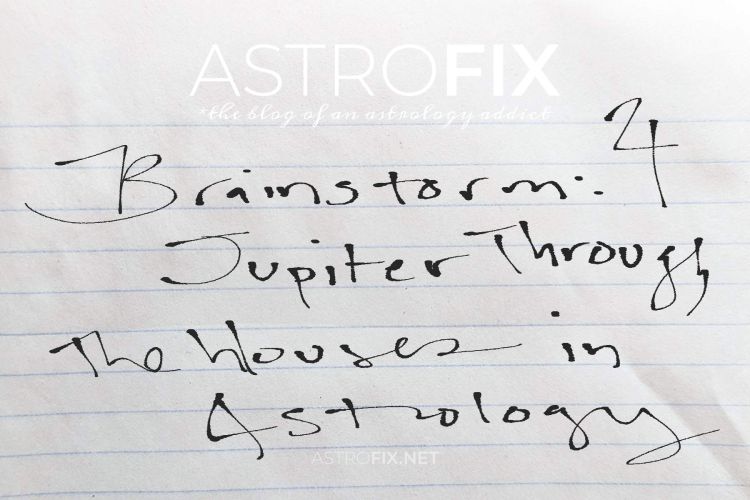 ASTROFIX
*the blog of an astrology addict
Brainstorm: ♃
Jupiter Through
The Houses in
Astrology
ASTROFIX.NET